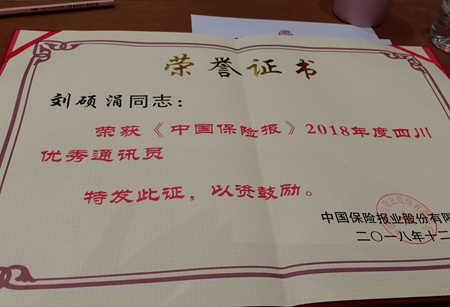 荣誉证书
刘硕涓同志：
荣获《中国保险报》2018年度四川
优秀通讯员
特发此证，以资鼓励。
中国保险报业股份有限
二〇一八年十二